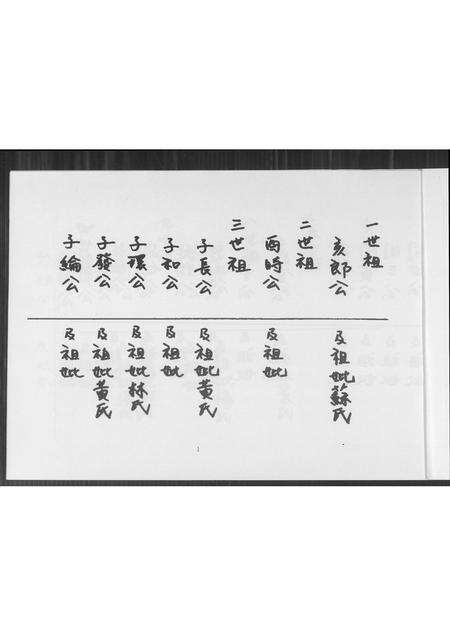 一世祖
亥郎公 及祖妣蘇氏
二世祖
酉時公 及祖妣
三世祖
子長公 及祖妣黃氏
子和公 及祖妣
子環公 及祖妣林氏
子發公 及祖妣黃氏
子綸公 及祖妣
1